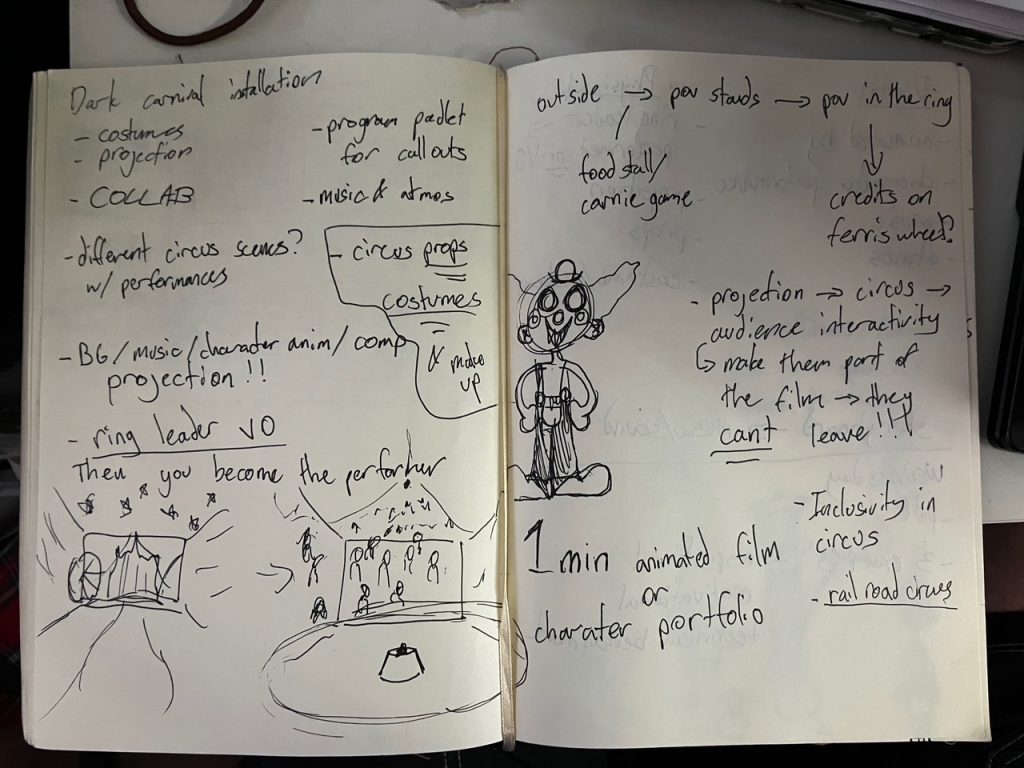 Dark carnival installation
- costumes
- projection
- COLLAB
- program padlet
for callouts
- music & atmos
- different circus scenes?
w/ performances
- circus props
costumes
& make
up
- BG/music/character anim/comp
projection!!
- ring leader VO
Then you become the performer
outside → pov stands → pov in the ring
/
food stall/
carnie game
credits on
ferris wheel?
- projection → circus →
audience interactivity
↳ make them part of
the film → they
cant leave!!!
- Inclusivity in
circus
- rail road circus
1 min animated film
or
charater portfolio